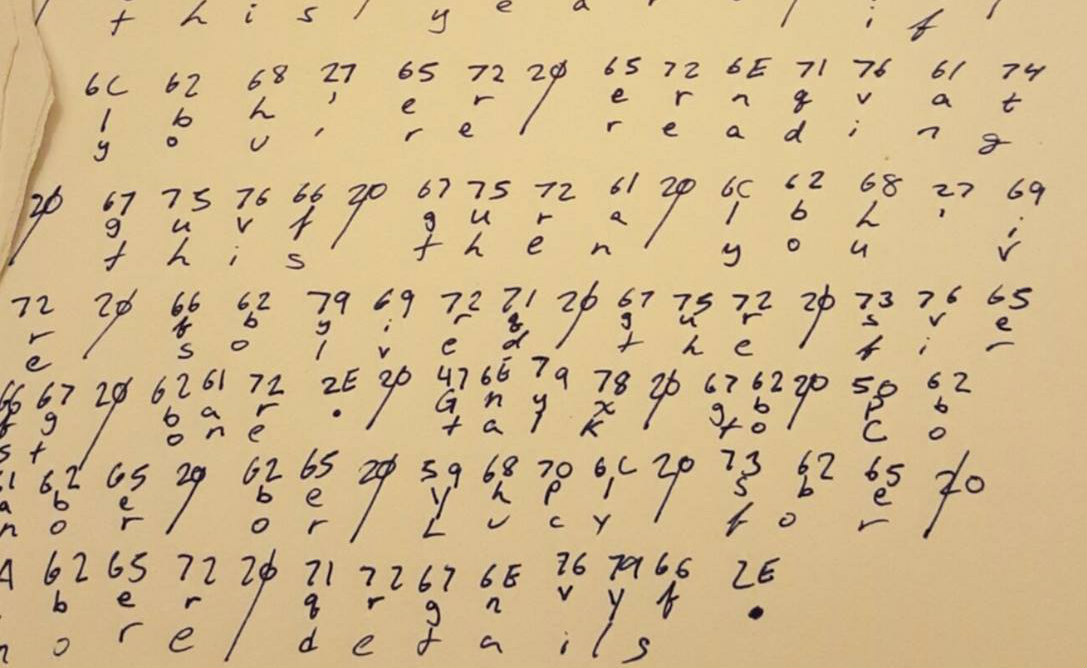 t h i s / y e a / i f
6C 62 68 27 65 72 20 65 72 6E 71 76 61 74
l b h ' e r / e r n q v a t
y o u ' r e r e a d i n g
20 67 75 76 66 20 67 75 72 61 20 6C 62 68 27 69
/ g u v f / g u r a / l b h ' i
t h i s t h e n y o u v
72 20 66 62 79 69 72 71 20 67 75 72 20 73 76 65
r / f b y i r q / g u r / s v e
e s o l v e d t h e f i r
66 67 20 62 61 72 2E 20 47 6E 79 78 20 67 62 20 50 62
f g / b a r . G n y x / g b P b
s t o n e t a l k t o C o
61 62 65 20 62 65 20 59 68 70 6C 20 73 62 65 20
a b e / b e / Y h p l / s b e /
n o r o r L u c y f o r
A 62 65 72 20 71 72 67 6E 76 79 66 2E
b e r / q r g n v y f .
o r e d e t a i l s